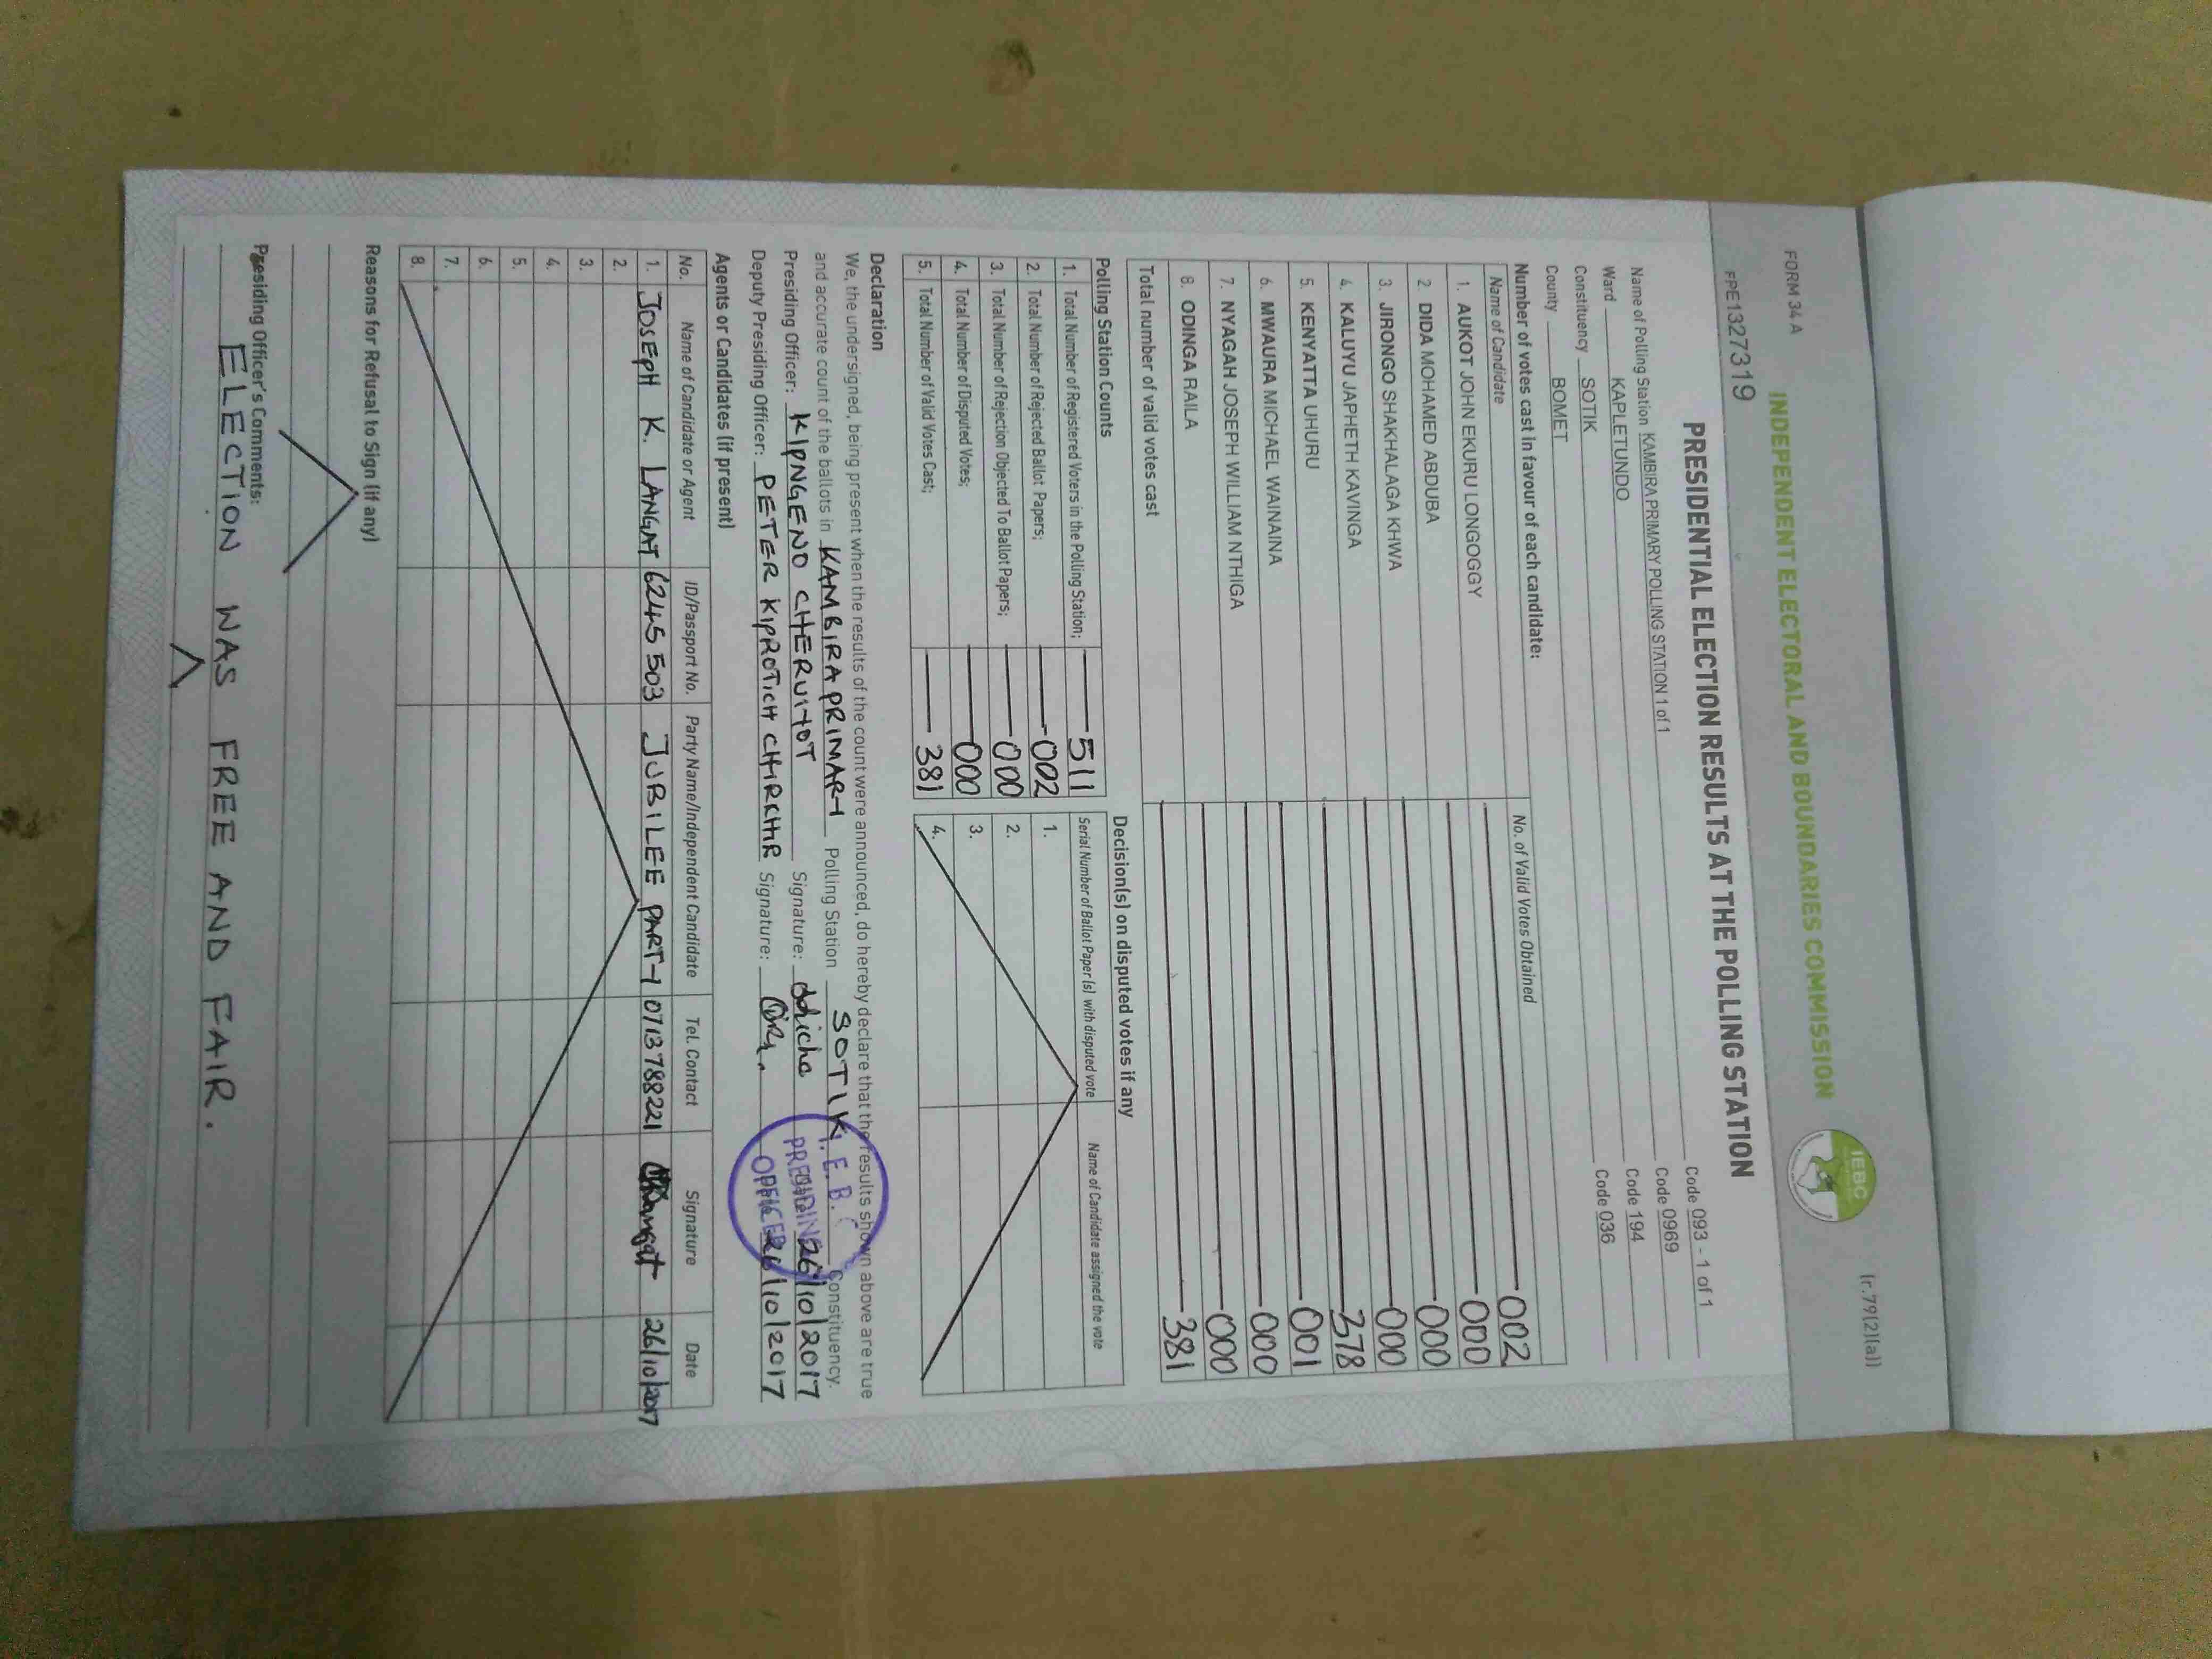 FORM 34 A
(r.79(2)(a))
INDEPENDENT ELECTORAL AND BOUNDARIES COMMISSION
IEBC
FPE1327319
PRESIDENTIAL ELECTION RESULTS AT THE POLLING STATION
Name of Polling Station KAMBIRA PRIMARY POLLING STATION 1 of 1 Code 093 - 1 of 1
Ward KAPLETUNDO Code 0969
Constituency SOTIK Code 194
County BOMET Code 036
Number of votes cast in favour of each candidate:
Name of Candidate No. of Valid Votes Obtained
1. AUKOT JOHN EKURU LONGOGGY 002
2 DIDA MOHAMED ABDUBA 000
3. JIRONGO SHAKHALAGA KHWA 000
4. KALUYU JAPHETH KAVINGA 000
5. KENYATTA UHURU 378
6. MWAURA MICHAEL WAINAINA 001
7. NYAGAH JOSEPH WILLIAM NTHIGA 000
8. ODINGA RAILA 000
Total number of valid votes cast 381
Polling Station Counts
1. Total Number of Registered Voters in the Polling Station; 511
2. Total Number of Rejected Ballot Papers; 002
3. Total Number of Rejection Objected To Ballot Papers; 000
4. Total Number of Disputed Votes; 000
5. Total Number of Valid Votes Cast; 381
Decision(s) on disputed votes if any
Serial Number of Ballot Paper(s) with disputed vote Name of Candidate assigned the vote
1.
2.
3.
4.
Declaration
We, the undersigned, being present when the results of the count were announced, do hereby declare that the results shown above are true
and accurate count of the ballots in KAMBIRA PRIMARY Polling Station SOTIK Constituency.
Presiding Officer: KIPNGENO CHERUIYOT Signature: 26/10/2017
Deputy Presiding Officer: PETER KIPROTICH CHIRCHIR Signature: 26/10/2017
I. E. B. C
PRESIDING
OFFICER
Agents or Candidates (if present)
No. Name of Candidate or Agent ID/Passport No. Party Name/Independent Candidate Tel. Contact Signature Date
1. JOSEPH K. LANGAT 6245503 JUBILEE PARTY 0713788221 26/10/2017
2.
3.
4.
5.
6.
7.
8.
Reasons for Refusal to Sign (if any)
Presiding Officer's Comments:
ELECTION WAS FREE AND FAIR.